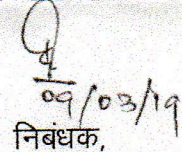 09/03/19
निबंधक,